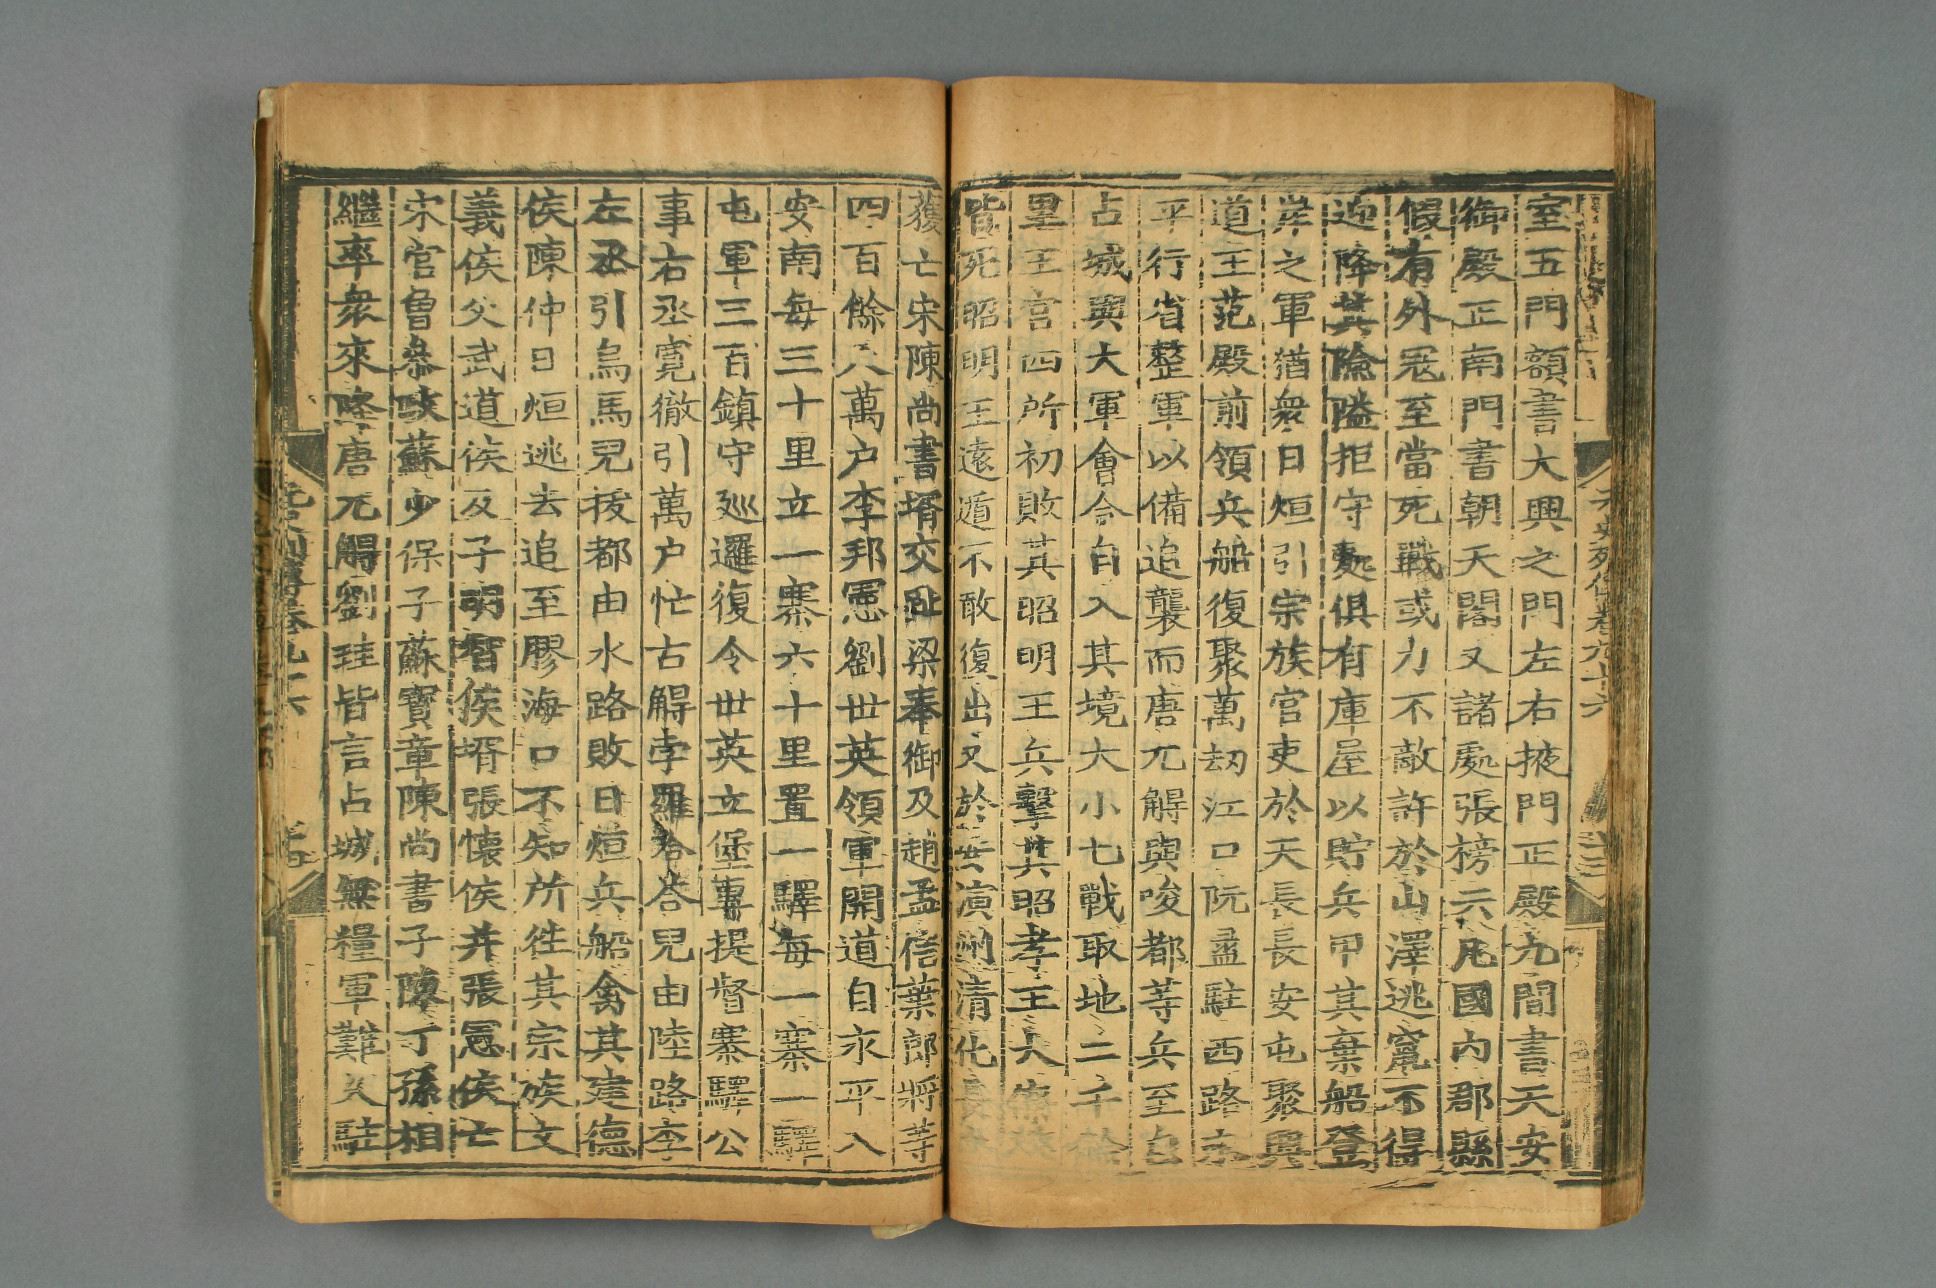 室五門額書大興之門左右掖門正殿九間書天安
御殿正南門書朝天閣又諸處張榜云凡國內郡縣
假有外冦至當死戰或力不敵許於山澤逃竄不得
迎降其險隘拒守處俱有庫屋以貯兵甲其棄船登
岸之軍猶衆日烜引宗族官吏於天長長安屯聚興
道王范殿前領兵船復聚萬劫江口阮盝駐西路永
平行省整軍以備追襲而唐兀䚟與唆都等兵至自
占城與大軍會合自入其境大小七戰取地二千餘
里王宮四所初敗其昭明王兵擊其昭孝王大僚護
皆死昭明王遠遁不敢復出又於安演州清化長安
獲亡宋陳尚書壻交趾梁奉御及趙孟信葉郎將等
四百餘人萬户李邦憲劉世英領軍開道自永平入
安南每三十里立一寨六十里置一驛每一寨一驛
屯軍三百鎮守廵邏復令世英立堡專提督寨驛公
事右丞寛徹引萬户忙古䚟孛羅哈答兒由陸路李
左丞引烏馬兒拔都由水路敗日烜兵船禽其建德
侯陳仲日烜逃去追至膠海口不知所徃其宗族文
義侯父武道侯及子明智侯壻張懷侯并張憲侯亡
宋官曾參政蘇少保子蘇寶章陳尚書子陳丁孫相
繼率衆來降唐兀䚟劉珪皆言占城無糧軍難久駐
元史列傳卷九十六